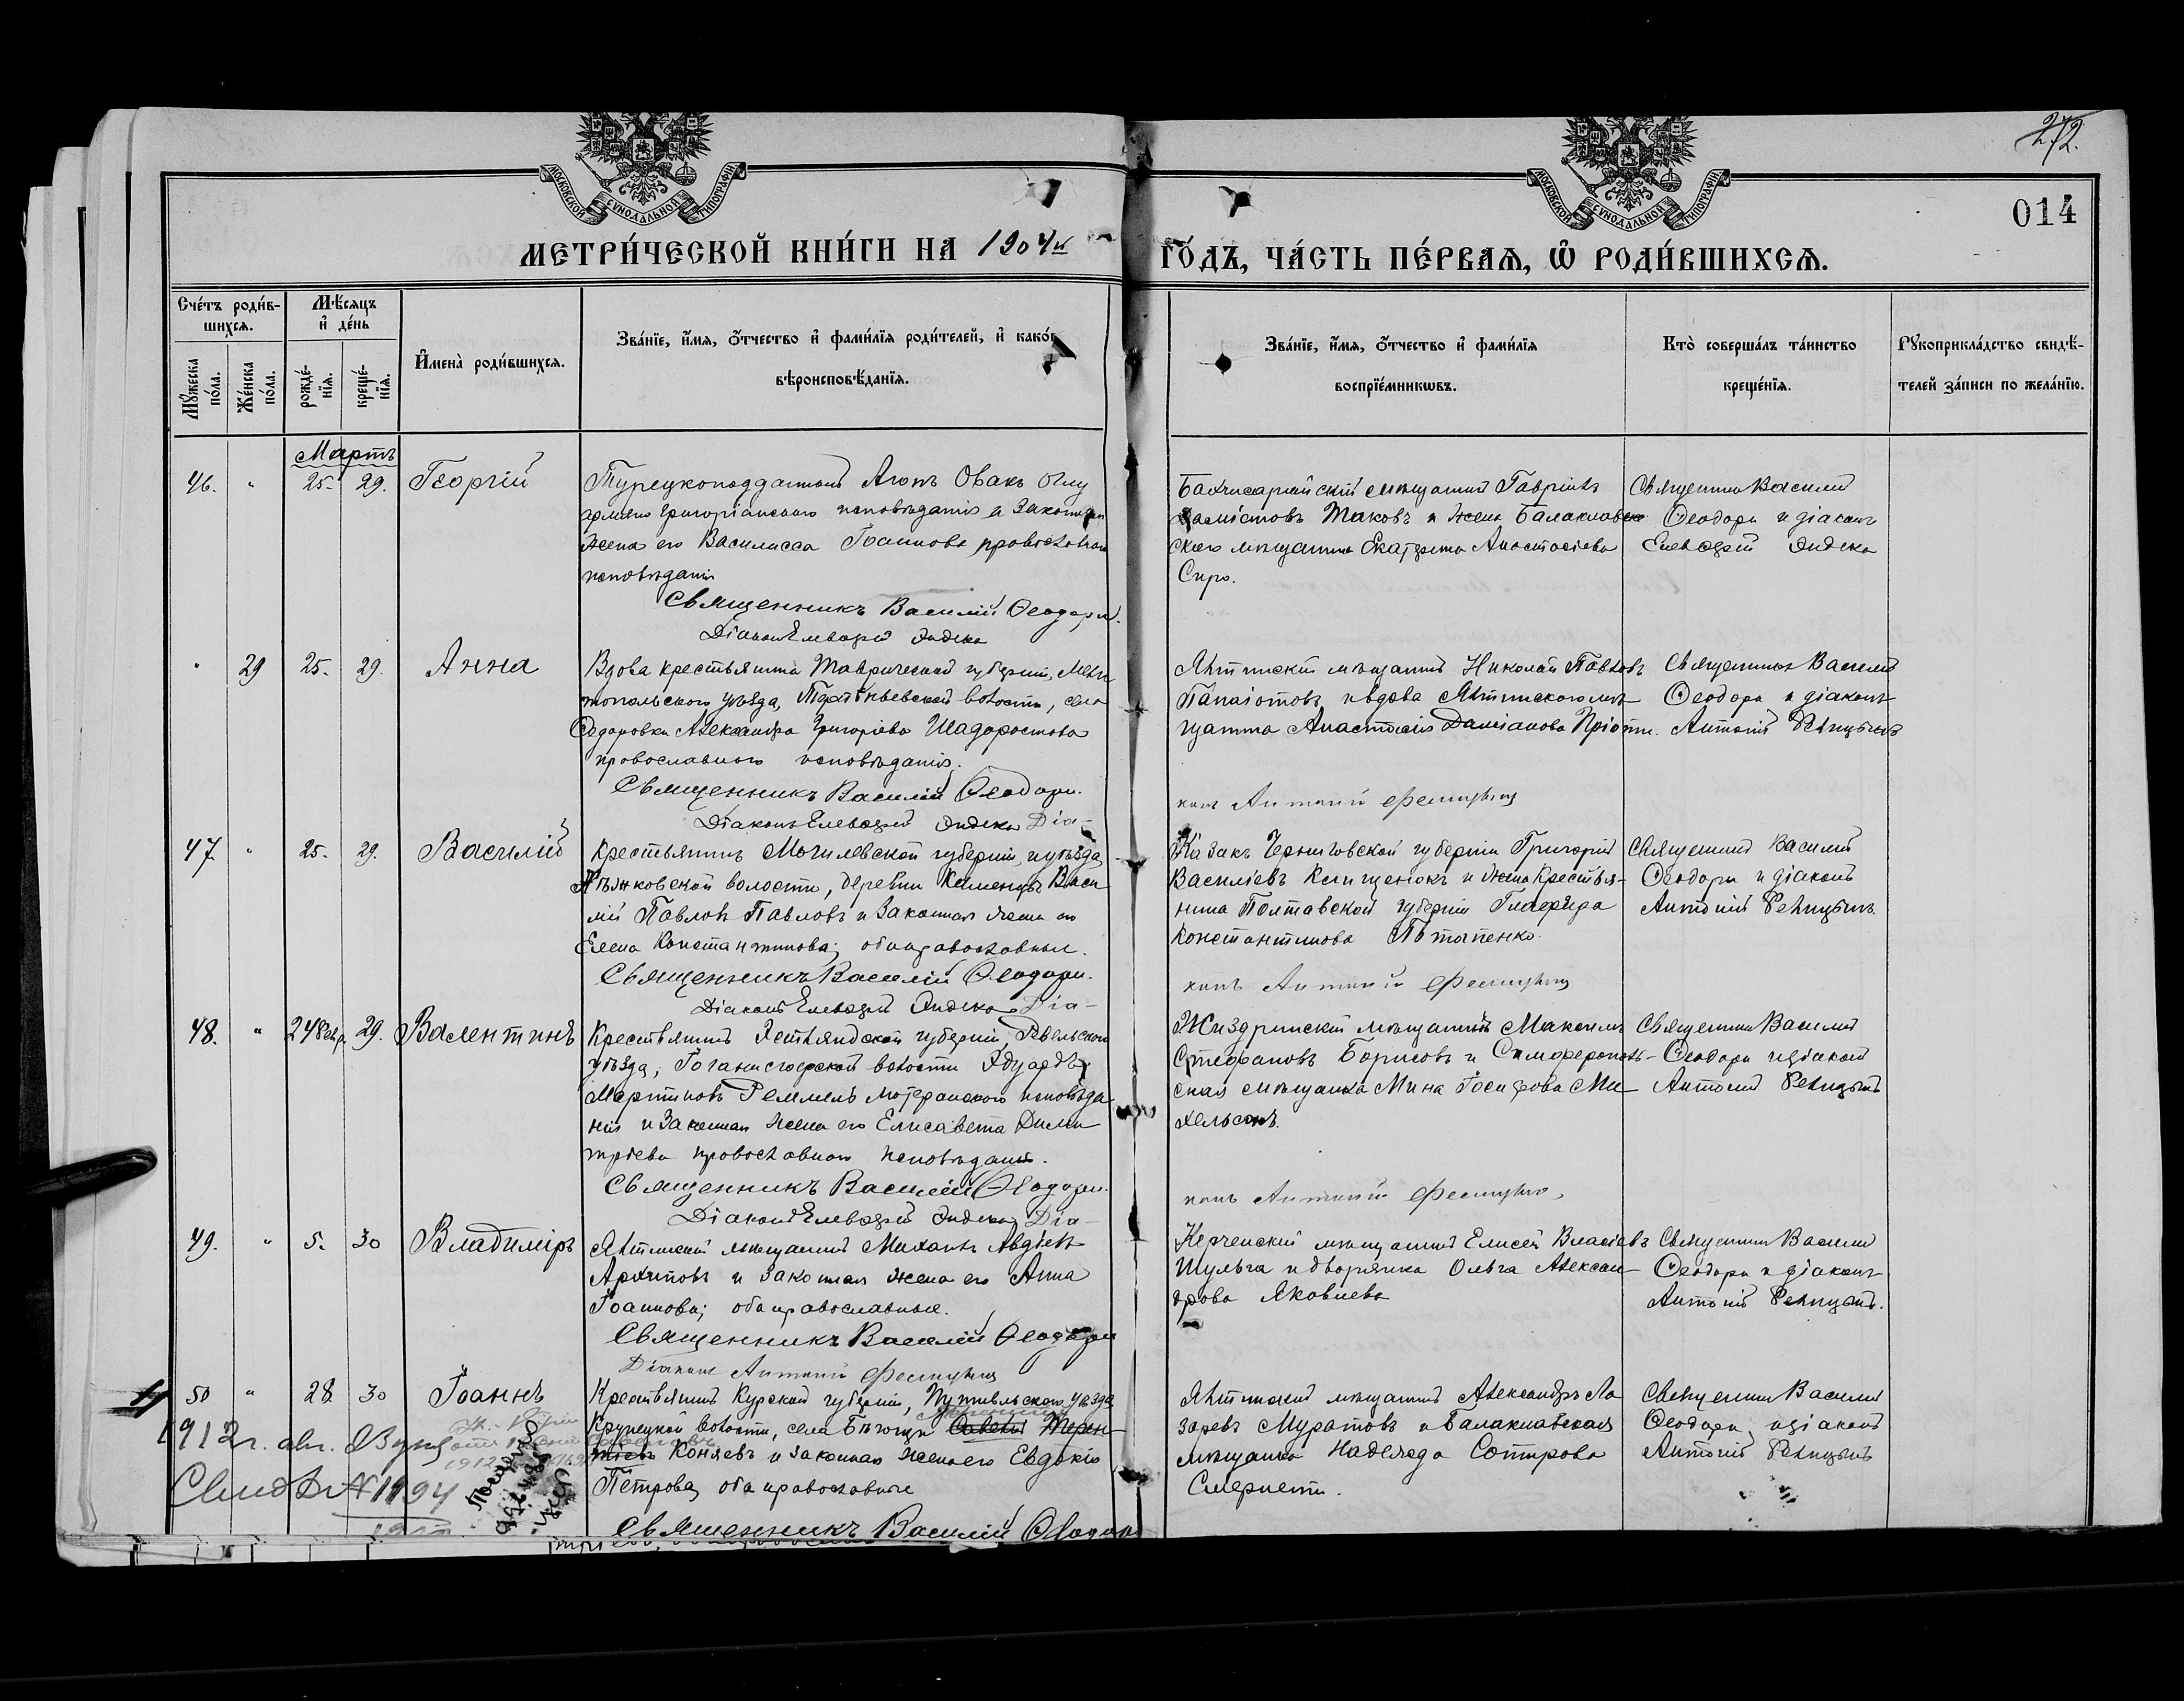 272.
014
МОСКОВСКОЙ СѴНОДАЛЬНОЙ ТИПОГРАФІИ.
МОСКОВСКОЙ СѴНОДАЛЬНОЙ ТИПОГРАФІИ.
МЕТРИ́ЧЕСКОЙ КНИ́ГИ НА 1904й ГО́ДЪ, ЧА́СТЬ ПЕ́РВАЯ, Ѡ РОДИ́ВШИХСЯ.
Сче́тъ роди́в-
шихся.
Мꙋ́жеска по́ла.
Же́нска по́ла.
Мѣ́сяцъ и҆ де́нь
рожде́-
нїя.
креще́-
нїя.
И҆мена̀ роди́вшихся.
Зва́нїе, и҆́мя, ѻ҆́тчество и҆ фами́лїя роди́телей, и҆ како́г
вѣроисповѣ́данїя.
Зва́нїе, и҆́мя, ѻ҆́тчество и҆ фами́лїя
воспрїе́мникѡвъ.
Кто̀ соверша́лъ та́инство
креще́нїя.
Рꙋкоприкла́дство свидѣ́-
телей за́писи по жела́нїю.
Мартъ
46. " 25. 29. Георгій
Турецкоподданный Агопъ Овакъ Оглу
армяно григоріанскаго исповѣданія и законная
жена его Василисса Іоаннова православнаго
исповѣданія
Священникъ Василій Ѳеодори.
Діаконъ Елевѳерій Эндека
Бахчисарайскій мѣщанинъ Гавріилъ
Даміановъ Таковъ и жена Балаклав
скаго мѣщанина Екатерина Анастасіева
Спро.
Священникъ Василій
Ѳеодори и діаконъ
Елевѳерій Эндека
" 29 25. 29. Анна
Вдова крестьянина Таврической губерніи, Мели
топольского уѣзда, волости, села
Ѳедоровки Александра Григоріева Шадоростова
православнаго исповѣданія.
Священникъ Василій Ѳеодори.
Діаконъ Елевѳерій Эндека Діа-
Ялтинскій мѣщанинъ Николай Павловъ
Панаіотовъ и вдова Ялтинскаго мѣ
щанина Анастасія Даміанова Пріоти.
конъ Антоній
Священникъ Василій
Ѳеодори и діаконъ
Антоній
47. " 25. 29. Василій
Крестьянинъ Могилевской губерніи, и уѣзда,
волости, деревни Каменцы Васи
лій Павловъ Павловъ и законная жена его
Елена Константинова; оба православные.
Священникъ Василій Ѳеодори.
Діаконъ Елевѳерій Эндека Діа-
Казакъ Черниговской губерніи Григорій
Василіевъ Клищенокъ и жена крестья-
нина Полтавской губерніи Гликерія
Константинова Потапенко.
конъ Антоній
Священникъ Василій
Ѳеодори и діаконъ
Антоній
48. " 24 Февр. 29. Валентинъ
Крестьянинъ Эстляндской губерніи, Ревельскаго
уѣзда, волости Эдуардъ
Мартиновъ Реммель лютеранскаго исповѣда
нія и законная жена его Елисавета Дими
тріева православнаго исповѣданія.
Священникъ Василій Ѳеодори.
Діаконъ Елевѳерій Эндека Діа-
Жиздринскій мѣщанинъ Максимъ
Стефановъ Борисовъ и Симферополь-
ская мѣщанка Мина Іосифова Ми
хельсонъ.
конъ Антоній
Священникъ Василій
Ѳеодори и діаконъ
Антоній
49. " 5. 30 Владиміръ
Ялтинскій мѣщанинъ Михаилъ Авдіевъ
Архиповъ и законная жена его Анна
Іоаннова; оба православные.
Священникъ Василій Ѳеодори
Діаконъ Антоній
Керченскій мѣщанинъ Елисей Власіевъ
Шульга и дворянка Ольга Алексан-
дрова Яковлева
Священникъ Василій
Ѳеодори и діаконъ
Антоній
50 " 28 30 Іоаннъ
Крестьянинъ Курской губерніи, Путивльскаго уѣзда
Крупецкой волости, села Терен-
тіевъ Коняевъ и законная жена его Евдокія
Петрова, оба православные
Священникъ Василій Ѳеодори
Ялтинскій мѣщанинъ Александръ Ла
заревъ Муратовъ и Балаклавская
мѣщанка Надежда Сотирова
Священникъ Василій
Ѳеодори, и діаконъ
Антоній
1912 г. авг.
№ 1194